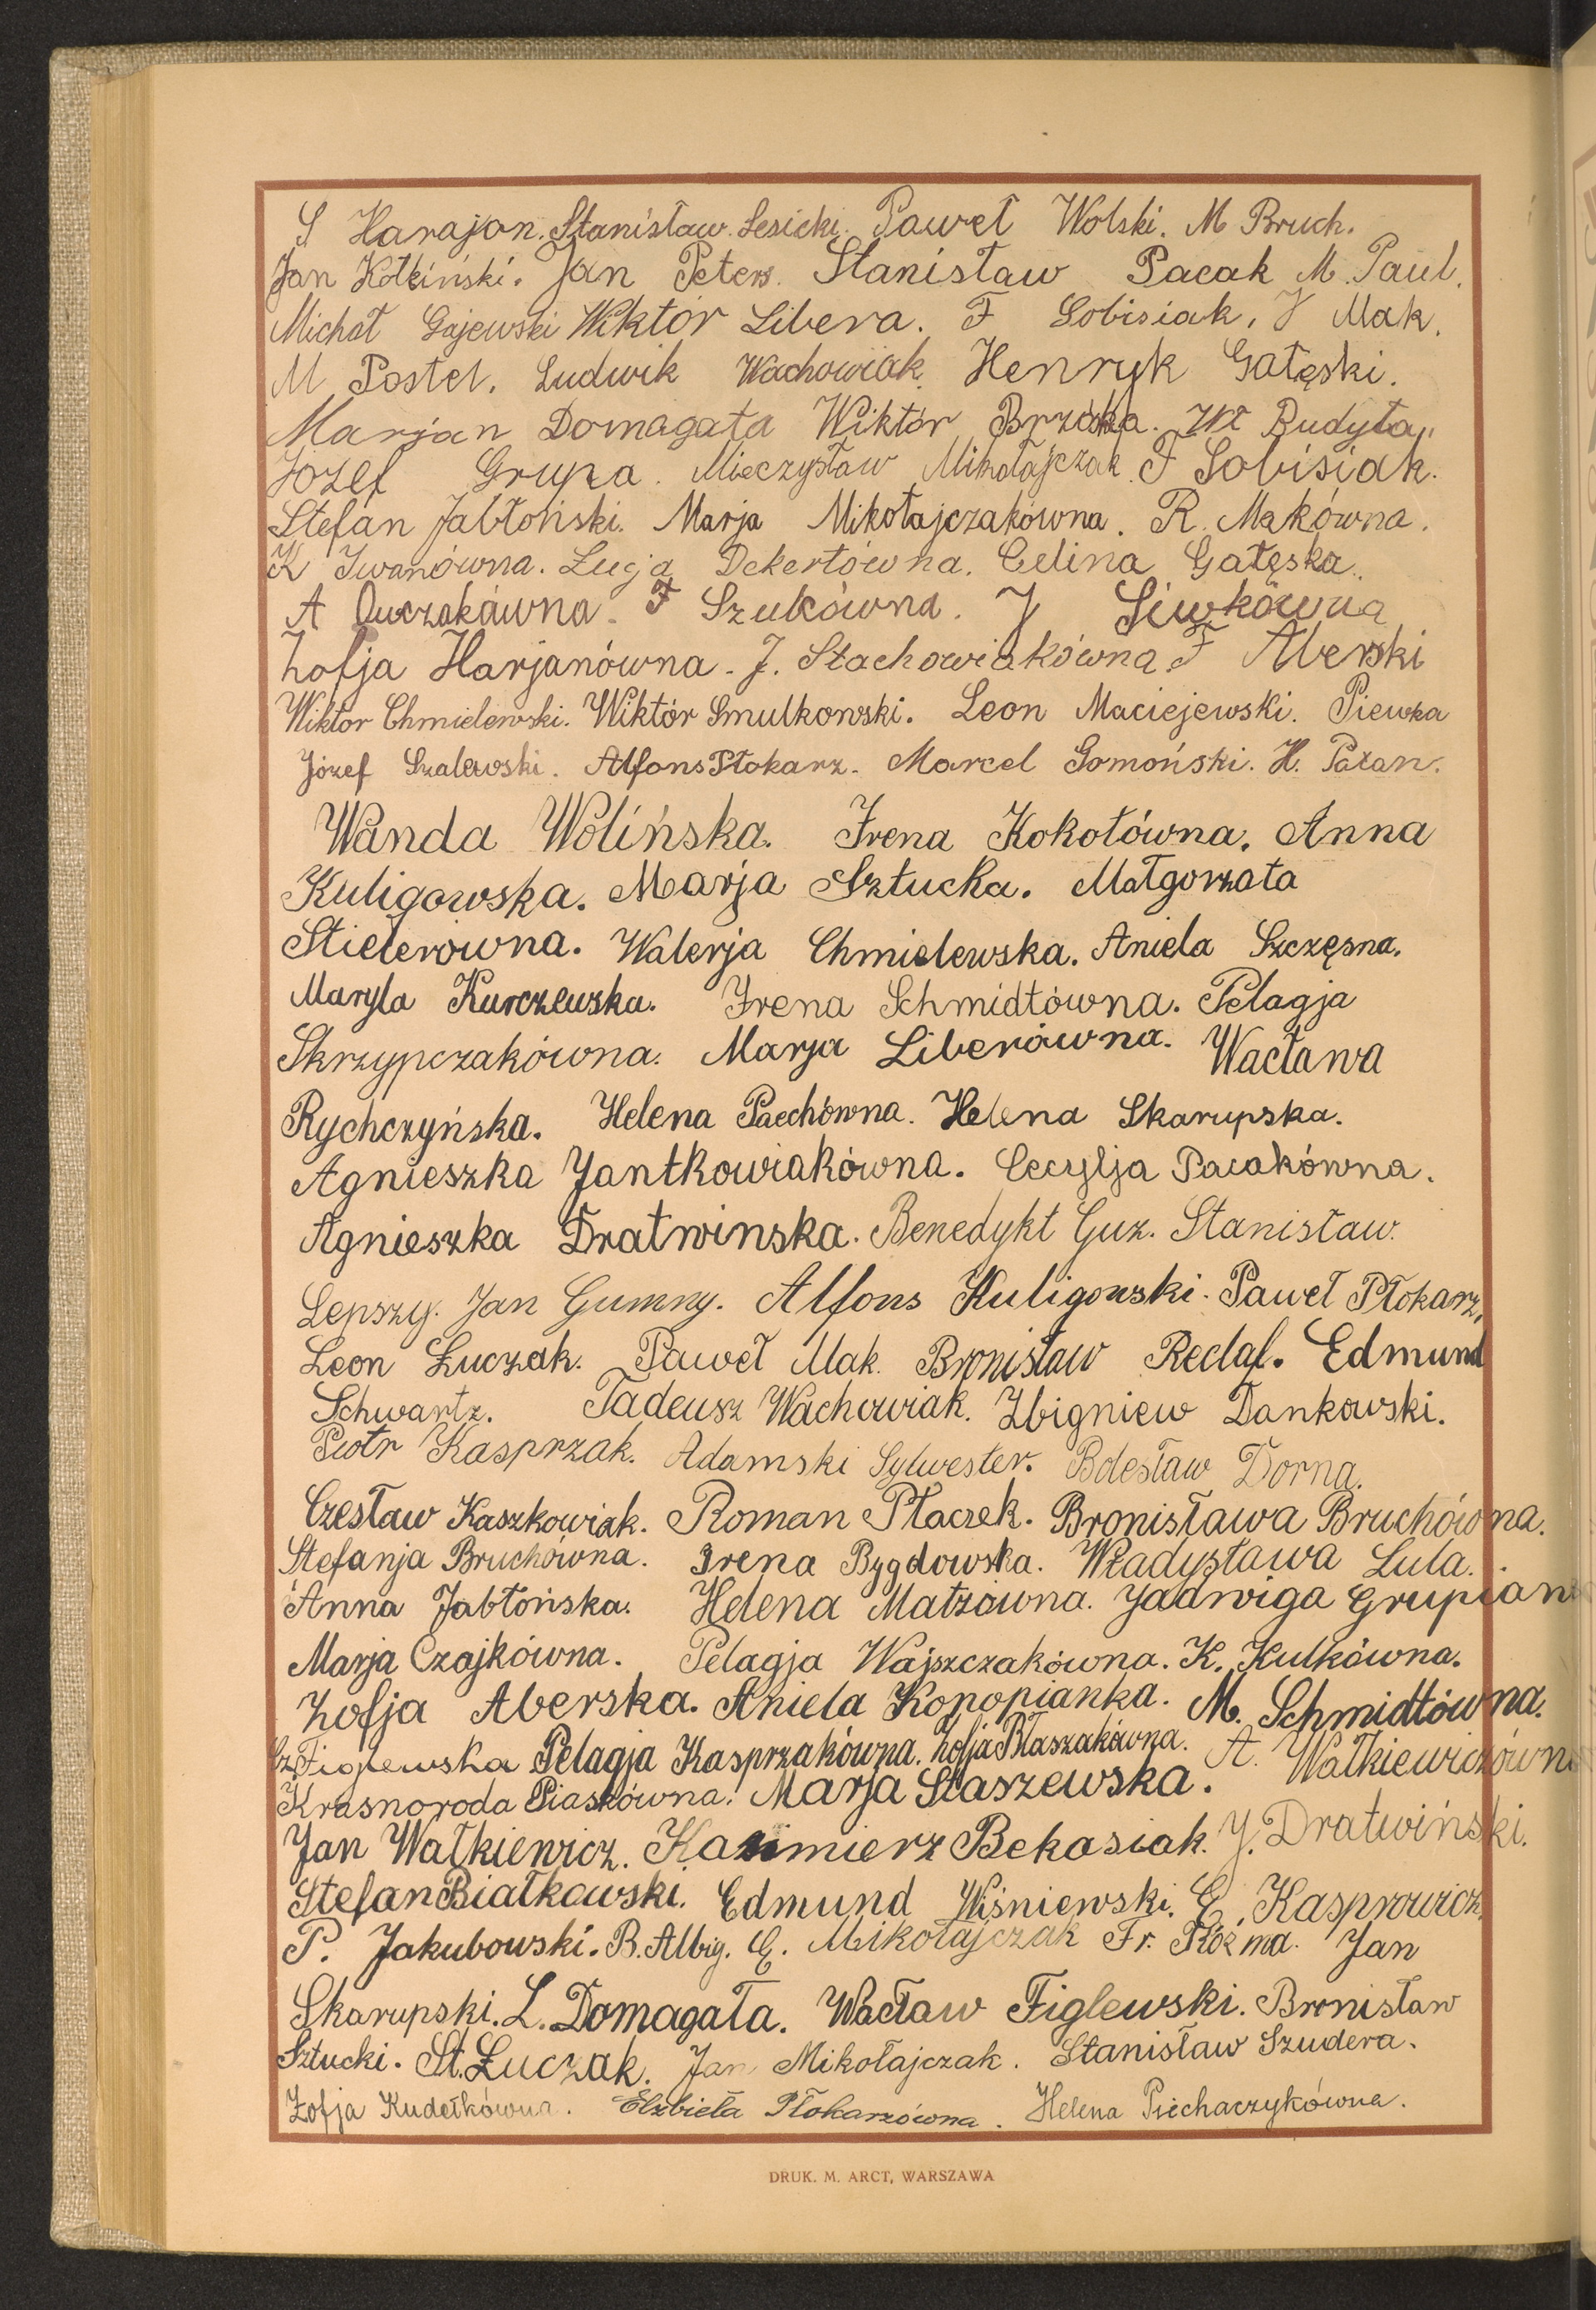 S Harajan. Stanisław Lesicki. Paweł Wolski. M Bruch.
Jan Kotliński. Jan Peters. Stanisław Pacak M. Paul.
Michał Gajewski Wiktór Libera. F Sobisiak, J Mak.
M Postel. Ludwik Wachowiak Henryk Gałęski.
Marjan Domagała Wiktór Brzóska. Wł Budyła,
Józef Grupa. Mieczysław Mikołajczak F Sobisiak.
Stefan Jabłoński. Marja Mikołajczakówna. R. Makówna.
K Iwanówna. Łucja Dekertówna. Celina Gałęska.
A Owczakówna. F Szulcówna. J Siwkówna
Zofja Harjanówna. J. Stachowiakówna F Aberski
Wiktor Chmielewski. Wiktór Smulkowski. Leon Maciejewski. Piewka
Józef Szalewski. Alfons Płokarz. Marcel Somoński. H. Pałan.
Wanda Wolińska. Irena Kokotówna. Anna
Kuligowska. Marja Sztucka. Małgorzata
Stielerówna. Walerja Chmielewska. Aniela Szczęsna.
Maryla Kurczewska. Irena Schmidtówna. Pelagja
Skrzypczakówna. Marja Liberówna. Wacława
Rychczyńska. Helena Paechówna. Helena Skarupska.
Agnieszka Jantkowiakówna. Cecylja Pacakówna.
Agnieszka Dratwinska. Benedykt Guz. Stanisław.
Lepszy. Jan Gumny. Alfons Kuligowski. Paweł Płokarz.
Leon Łuczak. Paweł Mak. Bronisław Redaf. Edmund
Schwartz. Tadeusz Wachowiak. Zbigniew Dankowski.
Piotr Kasprzak. Adamski Sylwester. Bolesław Dorna.
Czesław Kaszkowiak. Roman Płaczek. Bronisława Bruchówna.
Stefanja Bruchówna. Irena Bygdowska. Władysława Lula.
Anna Jabłońska. Helena Matzówna. Jadwiga Grupian
Marja Czajkówna. Pelagja Wajszczakówna. K. Kulkówna.
Zofja Aberska. Aniela Konopianka. M. Schmidtówna.
Cz Figlewska Pelagja Kasprzakówna. Zofja Błaszakówna. A. Wałkiewiczówna
Krasnoroda Piaskówna. Marja Staszewska.
Jan Wałkiewicz. Kazimierz Bekasiak. J. Dratwiński.
Stefan Białkowski. Edmund Wiśniewski. E. Kasprowicz.
P. Jakubowski. B. Albig. E. Mikołajczak Fr. Koźma. Jan
Skarupski. L. Domagała. Wacław Figlewski. Bronisław
Sztucki. St. Łuczak. Jan Mikołajczak. Stanisław Szudera.
Zofja Kudełkówna. Elżbieta Płokarzówna. Helena Piechaczykówna.
DRUK. M. ARCT, WARSZAWA